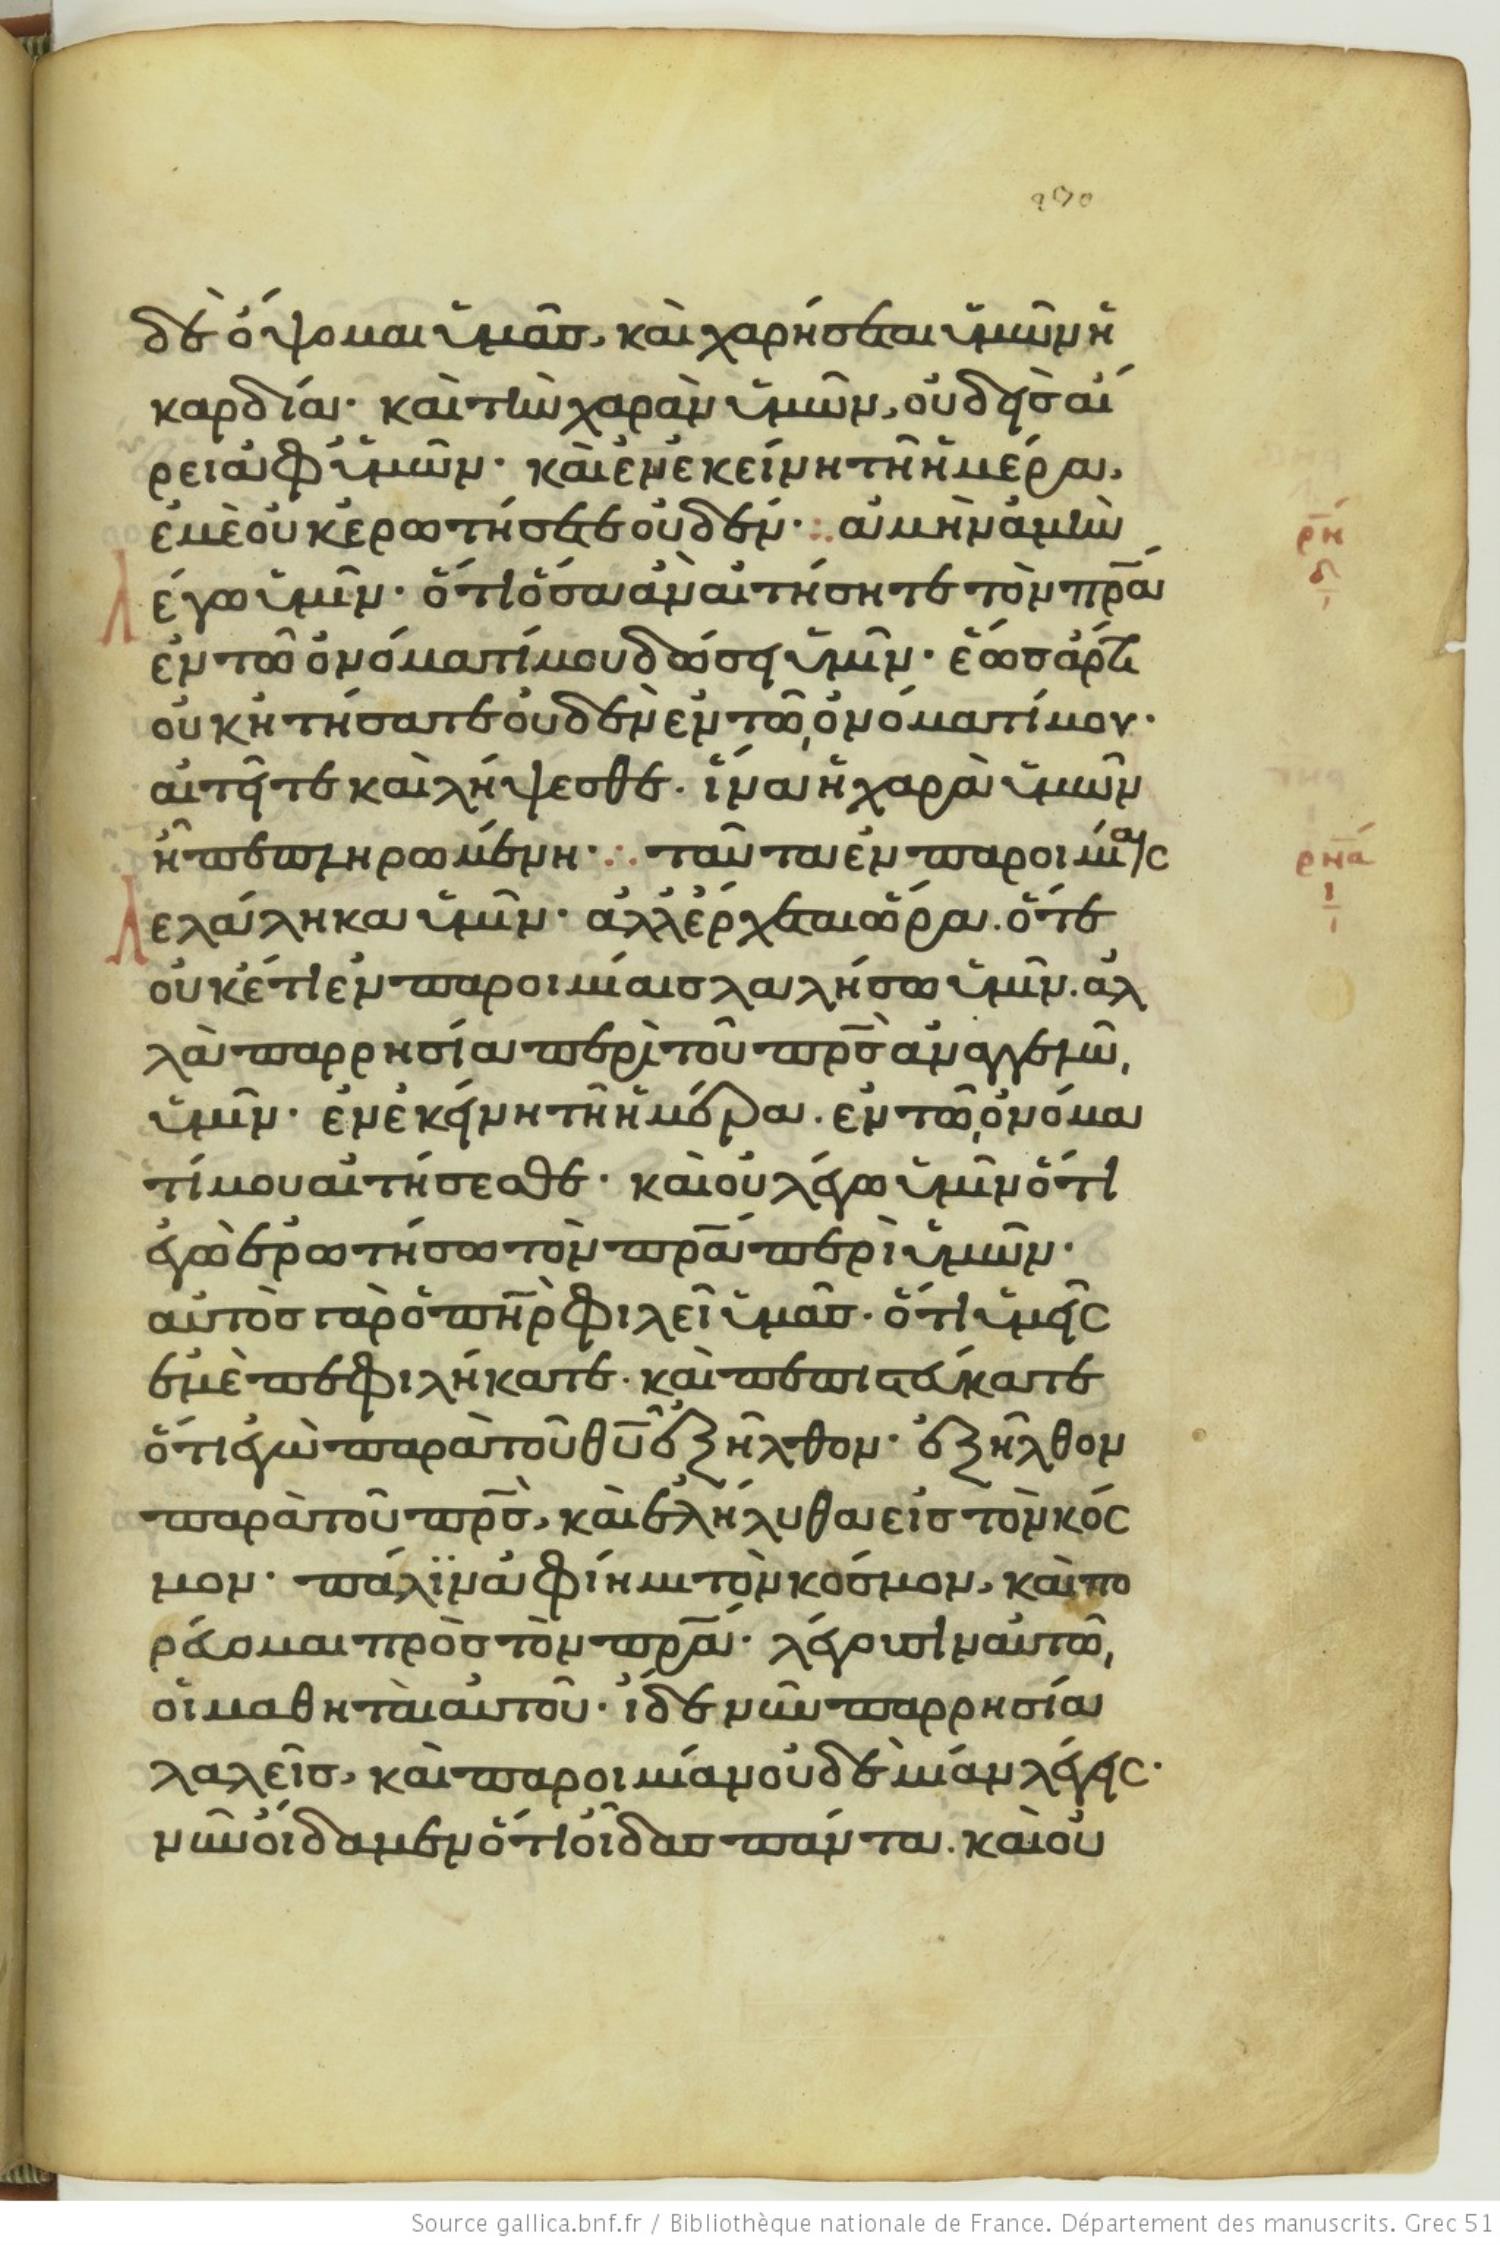 δὲ ὄψομαι ὑμᾶσ, καὶ χαρήσεται ὑμῶν ἡ
καρδία· καὶ τὴν χαρὰν ὑμῶν, οὐδεὶσ αἴ
ρει ἀφ ὑμῶν· καὶ ἐν ἐκείνη τῆ ἡμέρα,
ἐμὲ οὐκ ἐρωτήσετε οὐδέν· ἀμὴν ἀμὴν
λέγω ὑμῖν· ὅτι ὅσα ἀν αἰτήσητε τὸν πρ̅α
ἐν τῶ ὀνόματί μου δώσει ὑμῖν· ἕωσ ἄρτι
οὐκ ἠτήσατε οὐδὲν ἐν τῶ, ὀνόματί μου·
αἰτεῖτε καὶ λήψεσθε. ἵνα ἡ χαρὰ ὑμῶν
ἦ πεπληρωμένη· ταῦτα ἐν παροιμίαις
λελάληκα ὑμῖν· ἀλλ ἔρχεται ὥρα. ὅτε
οὐκέτι ἐν παροιμίαισ λαλήσω ὑμῖν. ἀλ
λὰ παρρησία περὶ τοῦ πρ̅σ ἀναγγελῶ,
ὑμῖν· ἐν ἐκείνη τῆ ἡμέρα. ἐν τῶ, ὀνόμα
τί μου αἰτήσεσθε· καὶ οὐ λέγω ὑμῖν ὅτι
ἐγὼ ἐρωτήσω τὸν πρ̅α περὶ ὑμῶν·
αὐτὸσ γὰρ ὁ πη̅ρ φιλεῖ ὑμᾶσ· ὅτι ὑμεῖς
ἐμὲ πεφιλήκατε. καὶ πεπιστεύκατε
ὅτι ἐγὼ παρὰ τοῦ θυ̅ ἐξῆλθον· ἐξῆλθον
παρὰ τοῦ πρ̅σ, καὶ ἐλήλυθα εἰσ τὸν κός
μον· πάλϊν ἀφίημι τὸν κόσμον, καὶ πο
ρεύομαι πρὸσ τὸν πρ̅α· λέγουσιν αὐτῶ,
οἱ μαθηταὶ αὐτοῦ· ἴδε νῦν παρρησία
λαλεῖσ, καὶ παροιμίαν οὐδὲ μίαν λέγεις·
νῦν οἴδαμεν ὅτι οἶδασ πάντα. καὶ οὐ
ρν̅η
δ
ι
ρνα̅
ι
Source gallica.bnf.fr / Bibliothèque nationale de France. Département des manuscrits. Grec 51